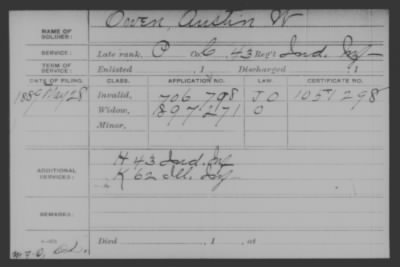 NAME OF SOLDIER: Owen, Austin W
SERVICE: Late rank, P Co. C, 43 Reg't Ind. Inf
TERM OF SERVICE: Enlisted , 1 Discharged , 1
DATE OF FILING. CLASS. APPLICATION NO. LAW. CERTIFICATE NO.
1889 May 28 Invalid, 706 798 J O 1051298
Widow, 897271 O
Minor,
ADDITIONAL SERVICES: H 43 Ind. Inf
K 62 Ill. Inf
REMARKS:
Died , 1 , at